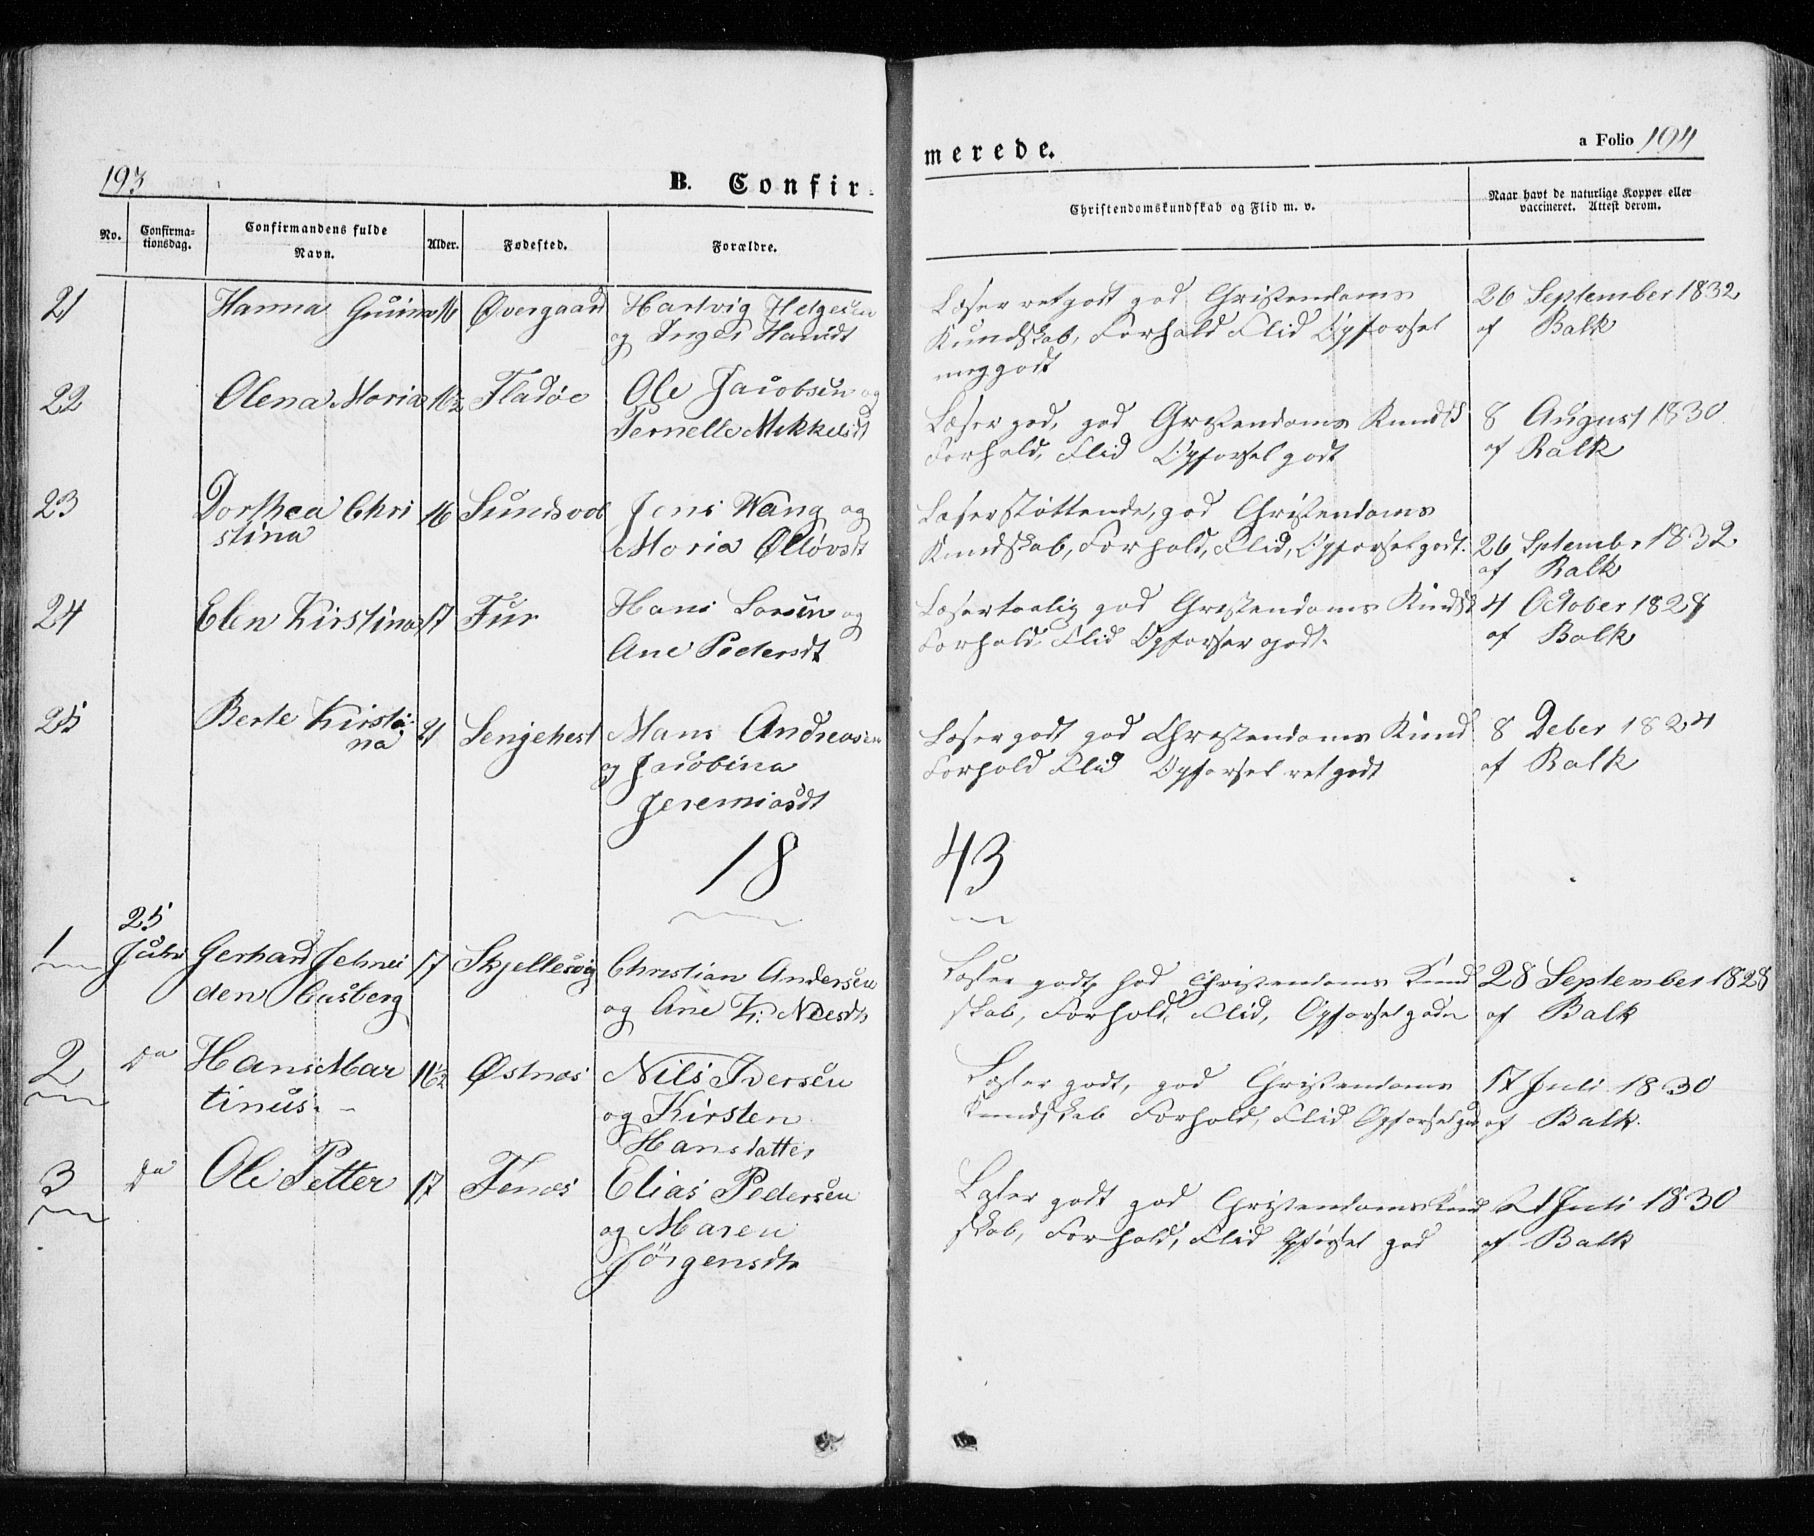 193
B. Confir-
merede.
a Folio 194
No.
Confirma-
tionsdag.
Confirmandens fulde
Navn.
Alder.
Fødested.
Forældre.
Christendomskundskab og Flid m. v.
Naar havt de naturlige Kopper eller
vaccineret. Attest derom.
21 Hanna 16 Øvergaard Hartvig Helgesen
og Inger Hansdt
Læser ret godt god Christendoms
Kundskab, Forhold Flid Opførsel
meg godt
26 September 1832
af Balk
22 Olena Maria 16½ Fladøe Ole Jacobsen og
Pernelle Mikkelsdt
Læser god, god Christendoms Kundsk
Forhold, Flid Opførsel godt
8 August 1830
af Balk
23 Dorthea Chri 16 Sundsvol Jens Wang og
stina Maria
Læser støttende, god Christendoms
Kundskab, Forhold, Flid, Opførsel godt.
26 Sptember 1832
af Balk
24 Elen Kirstina 17 Fur Hans Larsen og
Ane Pedersdt
Læser taalig god Christendoms Kundsk
Forhold Flid Opførsel godt.
4 October 1828
af Balk
25 Berte Kirsti- 21 Senjehest Hans Andreasen
na og Jacobina
Jeremiasdt
Læser godt god Christendoms Kund
Forhold Flid Opførsel ret godt
8 Deber 1824
af Balk
18
43
25
1 Juli Gerhard 17 Skjellesvig Christian Andersen
den og Ane K. Nilsdt
Læser godt, god Christendoms Kund
skab, Forhold, Flid, Opførsel godt
28 September 1828
af Balk
2 Do Hans Mar 16½ Østnæs Nils Iversen
tinus. - og Kirsten
Hansdatter
Læser godt, god Christendoms
Kundskab Forhold, Flid Opførsel god
17 Juli 1830
af Balk.
3 Do Ole Petter 17 Fenæs Elias Pedersen
og Maren
Jørgensdtr
Læser godt god Christendoms Kund
skab, Forhold, Flid Opførsel god
21 Juli 1830
af Balk